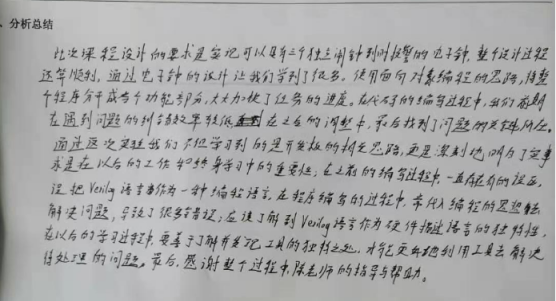 分析总结
此次课程设计的要求是实现可以具有三个独立闹钟到时报警的电子钟,整个设计过程
还算顺利。通过电子钟的设计让我们学到了很多。使用面向对象编程的思路,将整
个程序分成各个功能部分,大大加快了任务的进度。在代码的编写过程中,我们前期
在遇到问题的纠错效率较低,在之后的调整中,最后找到了问题的关键所在。
通过这次实践我们不但学习到的是开发板的相关思路,更是深刻地明白了实事
求是在以后的工作和终身学习中的重要性。在之前的编写过程中,一直存在有的误区,
误把Verilog语言当作为一种编程语言,在程序编写的过程中,带代入编程的思想去
解决问题,导致了很多错误;在读了解到Verilog语言作为硬件描述语言的独特性,
在以后的学习过程中,要善于了解开发工具的独特之处,才能更好地利用工具去解决
待处理的问题。最后,感谢整个过程中,陈老师的指导与帮助。